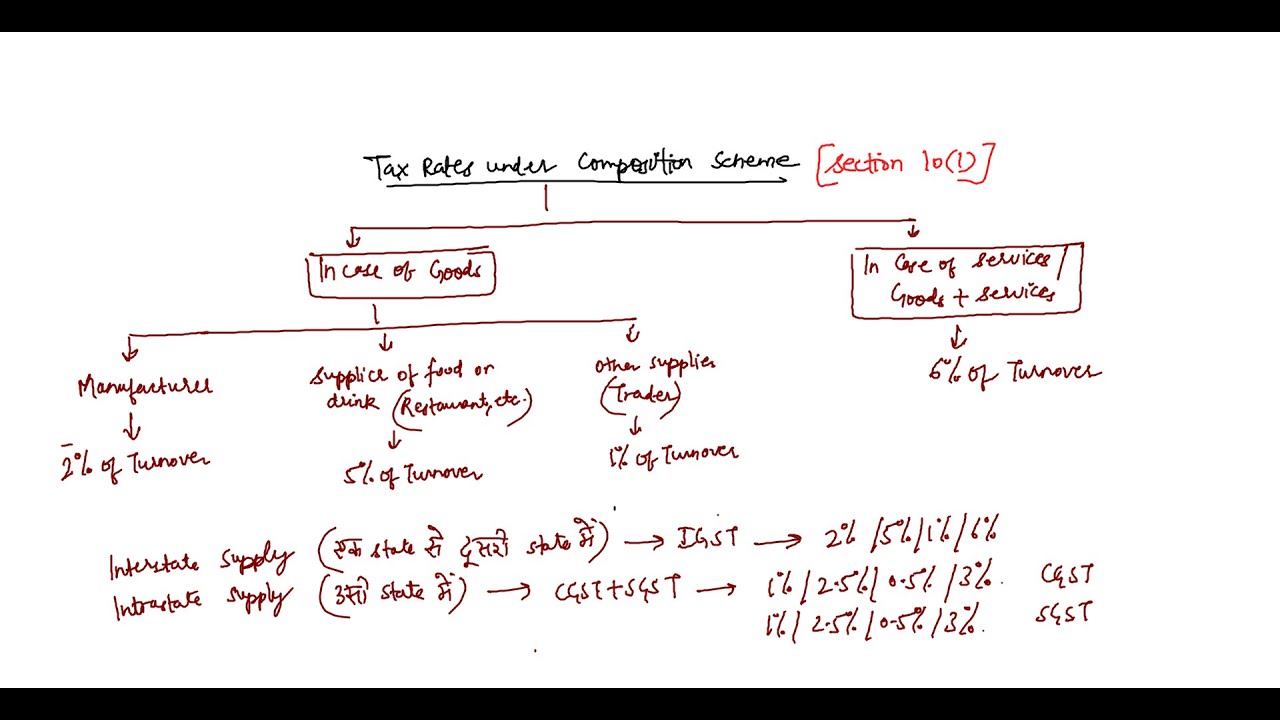 Tax Rates under Composition Scheme [Section 10(1)]
In case of Goods
In case of services/
Goods + services
Manufacturer
2% of Turnover
Supplies of food or
drink (Restaurant, etc.)
5% of Turnover
other supplies
(Trader)
1% of Turnover
6% of Turnover
Interstate supply (एक state से दूसरी state में) → IGST → 2% / 5% / 1% / 6%
Intrastate supply (उसी state में) → CGST + SGST → 1% / 2.5% / 0.5% / 3%. CGST
1% / 2.5% / 0.5% / 3%. SGST